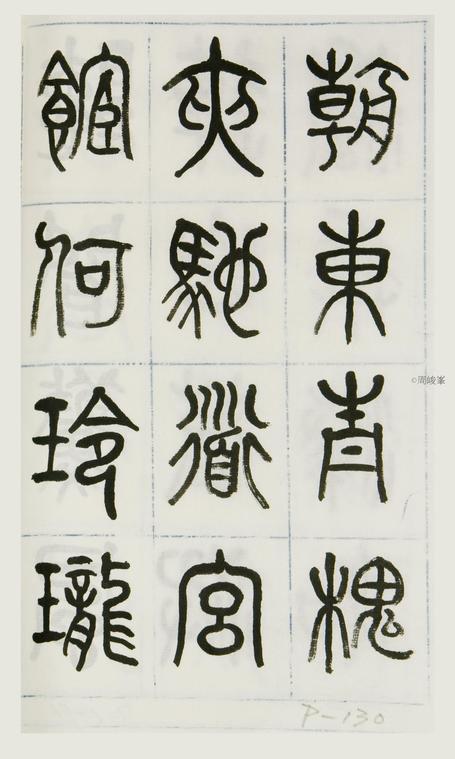 朝東青槐
夾馳道宮
館何玲瓏
©周峻峯
P-130